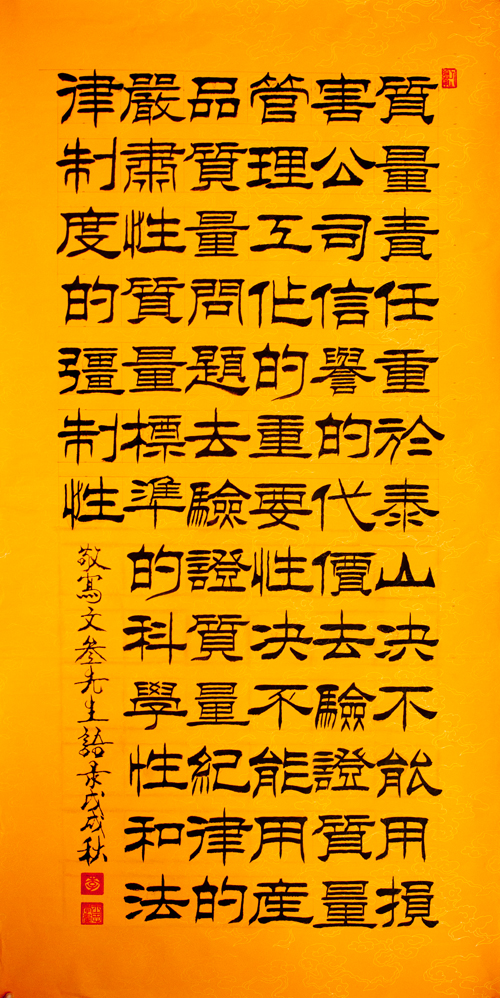 質量責任重於泰山决不能用損
害公司信譽的代價去驗證質量
管理工作的重要性决不能用産
品質量問題去驗證質量紀律的
嚴肅性質量標準的科學性和法
律制度的彊制性
敬寫文叄先生語录戊戌秋